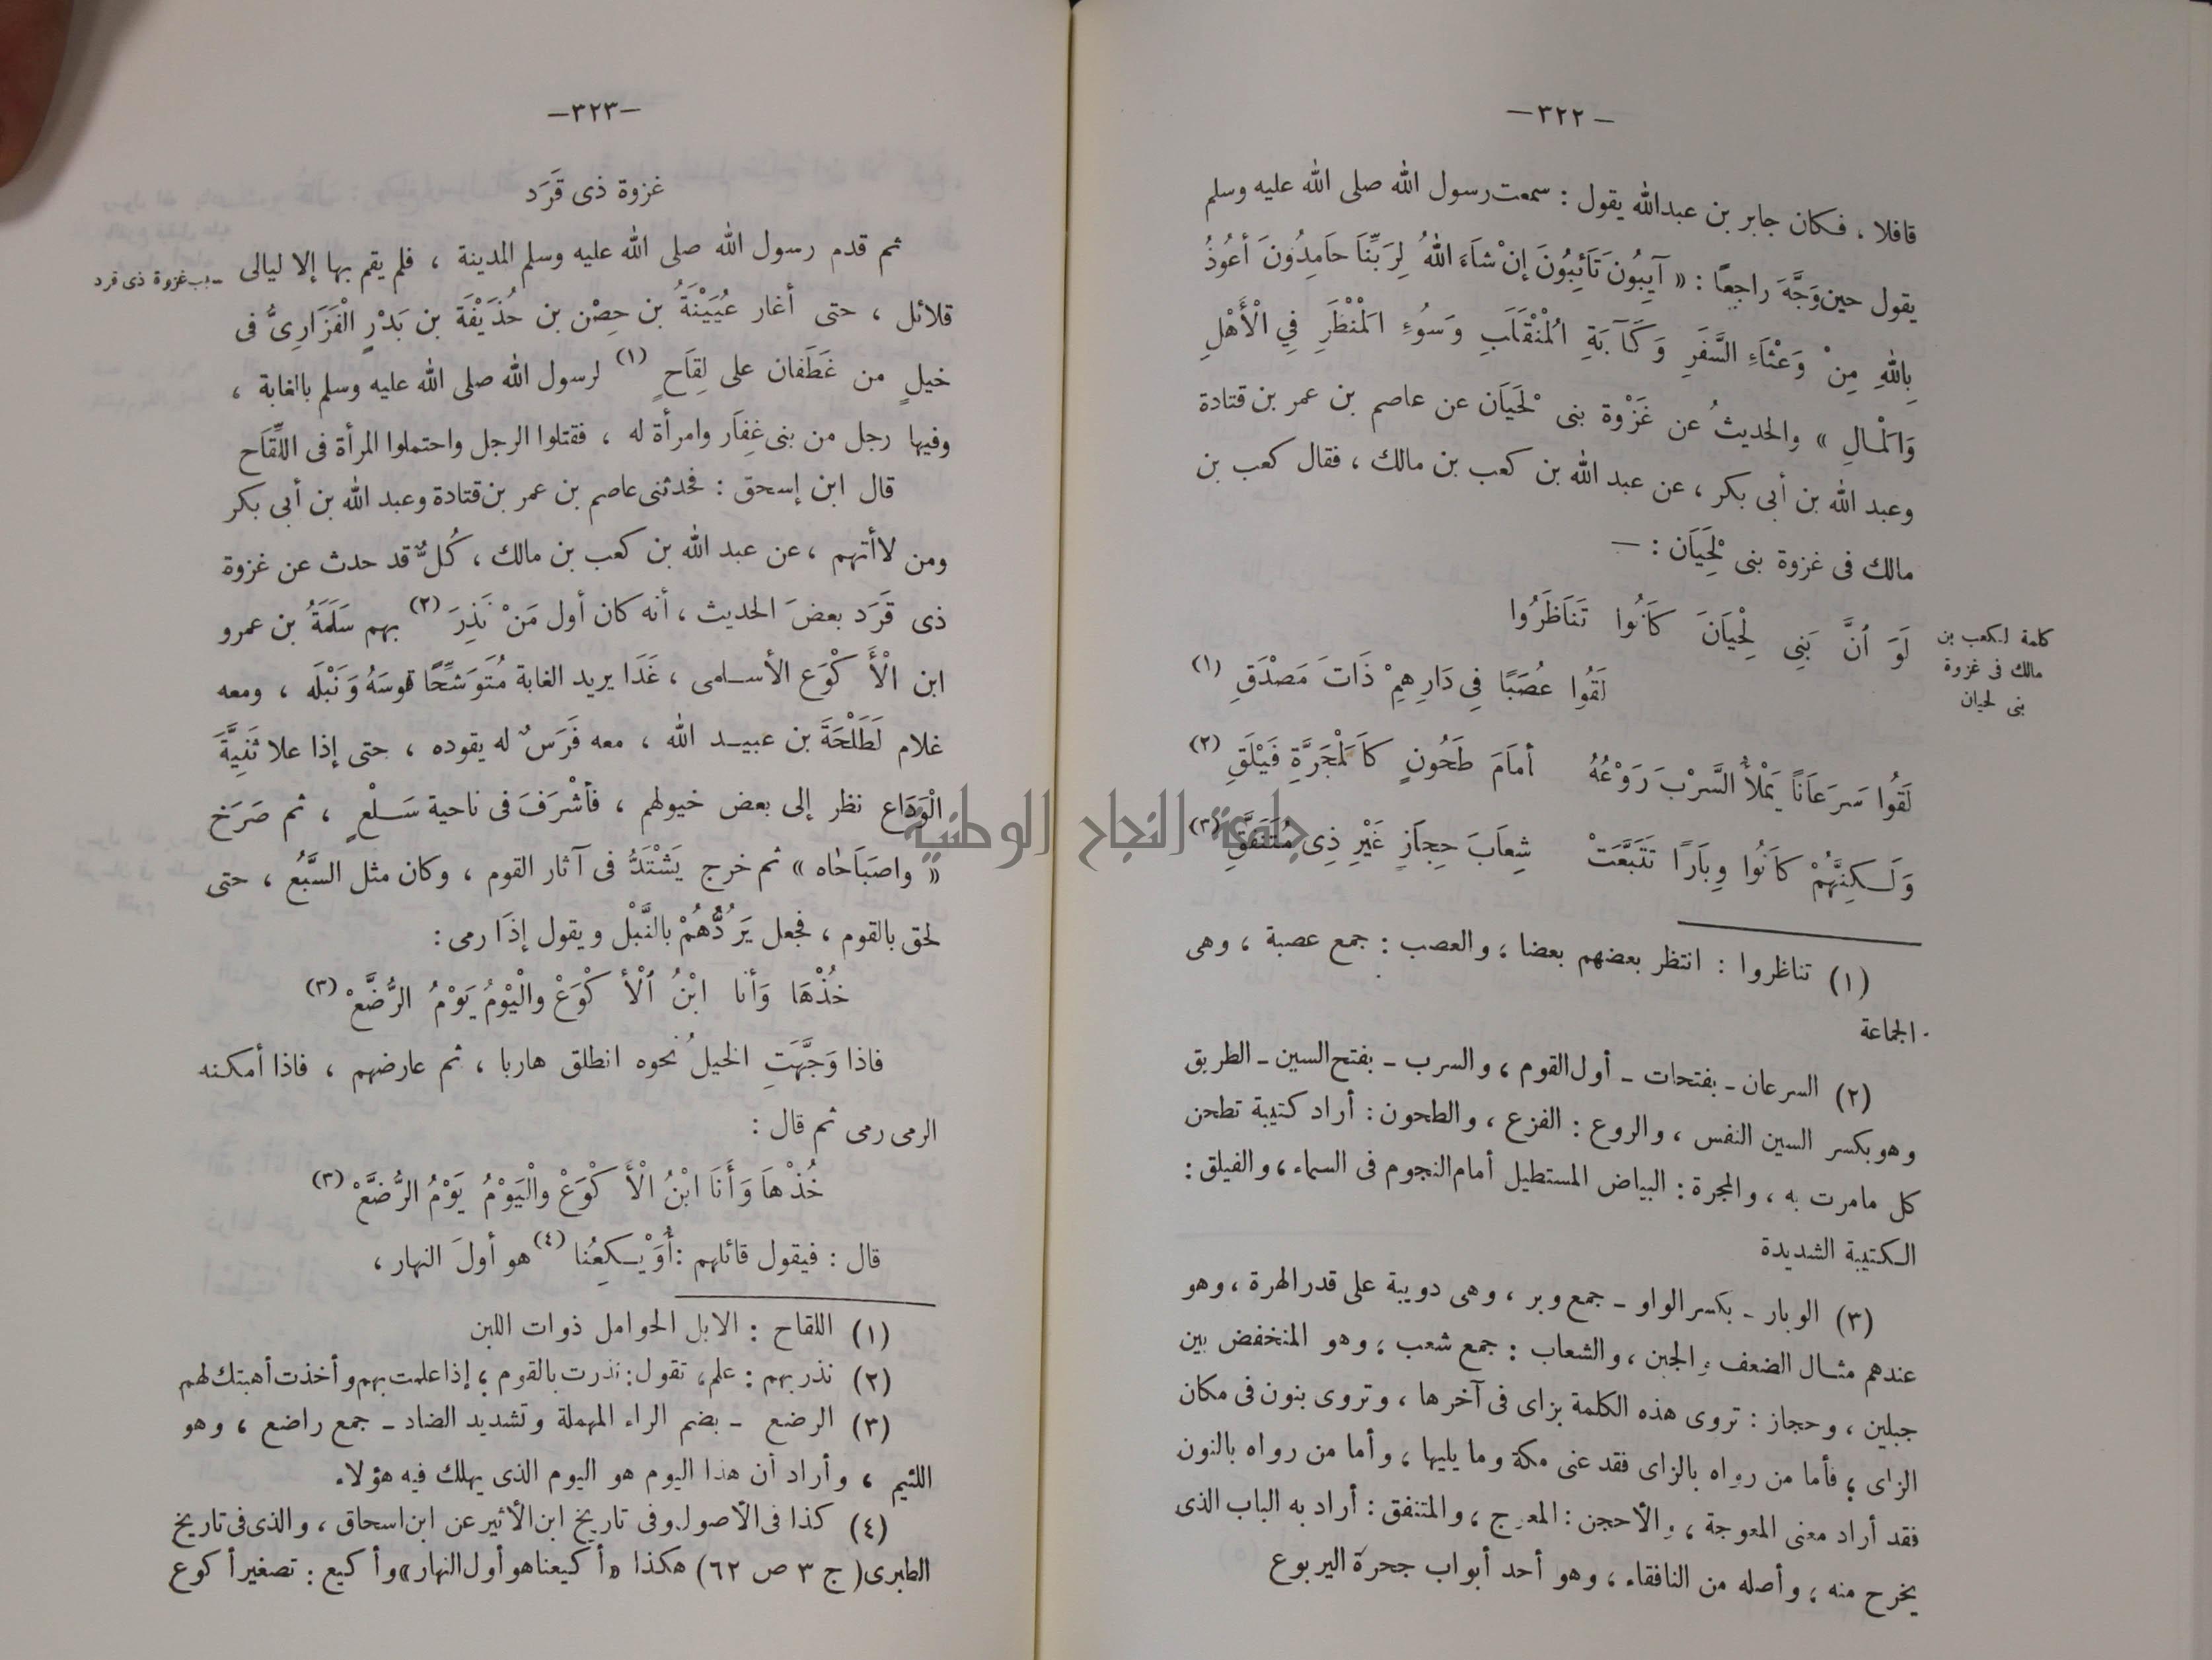 — ٣٢٢ —
قافلا ، فكان جابر بن عبدالله يقول : سمعت رسول الله صلى الله عليه وسلم
يقول حين وَجَّهَ راجعًا : « آيِبُونَ تَائِبُونَ إنْ شَاءَ اللهُ لِرَبِّنَا حَامِدُونَ أعُوذُ
بِاللهِ مِنْ وَعْثَاءِ السَّفَرِ وَكَآبَةِ الْمُنْقَلَبِ وَسُوءِ الْمَنْظَرِ فِي الْأَهْلِ
وَالْمَالِ » والحديثُ عن غَزْوة بنى لَحْيَان عن عاصم بن عمر بن قتادة
وعبد الله بن أبى بكر ، عن عبد الله بن كعب بن مالك ، فقال كعب بن
مالك فى غزوة بنى لِحْيَان : —
كلمة لكعب بن
مالك فى غزوة
بنى لحيان
لَوَ أنَّ بَنِى لِحْيَانَ كَانُوا تَنَاظَرُوا
لَقُوا عُصَبًا فِى دَارِهِمْ ذَاتَ مَصْدَقِ (١)
لَقُوا سَرَعَانًا يَمْلأُ السَّرْبَ رَوْعُهُ أمَامَ طَحُونٍ كَالْمَجَرَّةِ فَيْلَقِ (٢)
وَلَكِنَّهُمْ كَانُوا وِبَارًا تَتَبَّعَتْ شِعَابَ حِجَازٍ غَيْرِ ذِى مُتَنَفَّقِ (٣)
(١) تناظروا : انتظر بعضهم بعضا ، والعصب : جمع عصبة ، وهى
الجماعة
(٢) السرعان ـ بفتحات ـ أول القوم ، والسرب ـ بفتح السين ـ الطريق
وهو بكسر السين النفس ، والروع : الفزع ، والطحون : أراد كتيبة تطحن
كل مامرت به ، والمجرة : البياض المستطيل أمام النجوم فى السماء ، والفيلق :
الكتيبة الشديدة
(٣) الوبار ـ بكسر الواو ـ جمع وبر ، وهى دويبة على قدر الهرة ، وهو
عندهم مثال الضعف والجبن ، والشعاب : جمع شعب ، وهو المنخفض بين
جبلين ، وحجاز : تروى هذه الكلمة بزاى فى آخرها ، وتروى بنون فى مكان
الزاى ؛ فأما من رواه بالزاى فقد عنى مكة وما يليها ، وأما من رواه بالنون
فقد أراد معنى المعوجة ، والأحجن : المعوج ، والمتنفق : أراد به الباب الذى
يخرج منه ، وأصله من النافقاء ، وهو أحد أبواب جحرة اليربوع
— ٣٢٣ —
غزوة ذى قَرَد
ثم قدم رسول الله صلى الله عليه وسلم المدينة ، فلم يقم بها إلا ليالى
غزوة ذى قرد
قلائل ، حتى أغار عُيَيْنَةُ بن حِصْن بن حُذَيْفَة بن بَدْرٍ الْفَزَارِىُّ فى
خيلٍ من غَطَفان على لِقَاحٍ (١) لرسول الله صلى الله عليه وسلم بالغابة ،
وفيها رجل من بنى غِفَار وامرأة له ، فقتلوا الرجل واحتملوا المرأة فى اللِّقَاح
قال ابن إسحق : فحدثنى عاصم بن عمر بن قتادة وعبد الله بن أبى بكر
ومن لاأتهم ، عن عبد الله بن كعب بن مالك ، كُلٌّ قد حدث عن غزوة
ذى قَرَد بعضَ الحديث ، أنه كان أول مَنْ نَذِرَ (٢) بهم سَلَمَةُ بن عمرو
ابن الْأَكْوَع الأسلمى ، غَدَا يريد الغابة مُتَوَشِّحًا قوسَهُ وَنَبْلَه ، ومعه
غلام لَطَلْحَةَ بن عبيد الله ، معه فَرَسٌ له يقوده ، حتى إذا علا ثَنِيَّةَ
الْوَدَاع نظر إلى بعض خيولهم ، فأشْرَفَ فى ناحية سَلْعٍ ، ثم صَرَخ
« واصَبَاحَاه » ثم خرج يَشْتَدُّ فى آثار القوم ، وكان مثل السَّبُع ، حتى
لحق بالقوم ، فجعل يَرُدُّهُمْ بالنَّبْل ويقول إذَا رمى :
خُذْهَا وَأنا ابْنُ الْأكْوَعْ والْيوْمُ يَوْمُ الرُّضَّعْ (٣)
فاذا وَجَّهَتِ الخيلُ نحوه انطلق هاربا ، ثم عارضهم ، فاذا أمكنه
الرمى رمى ثم قال :
خُذْهَا وَأَنَا ابْنُ الْأَكْوَعْ والْيَوْمُ يَوْمُ الرُّضَّعْ (٣)
قال : فيقول قائلهم : أُوَيْكِعُنا (٤) هو أولَ النهار ،
(١) اللقاح : الابل الحوامل ذوات اللبن
(٢) نذر بهم : علم ، تقول : نذرت بالقوم ؛ إذا علمت بهم وأخذت أهبتك لهم
(٣) الرضع ـ بضم الراء المهملة وتشديد الضاد ـ جمع راضع ، وهو
اللئيم ، وأراد أن هذا اليوم هو اليوم الذى يهلك فيه هؤلاء
(٤) كذا فى الأصول وفى تاريخ ابن الأثير عن ابن اسحاق ، والذى فى تاريخ
الطبرى ( ج ٣ ص ٦٢ ) هكذا «أكيعنا هو أول النهار» وأكيع : تصغير أكوع
جامعة النجاح الوطنية